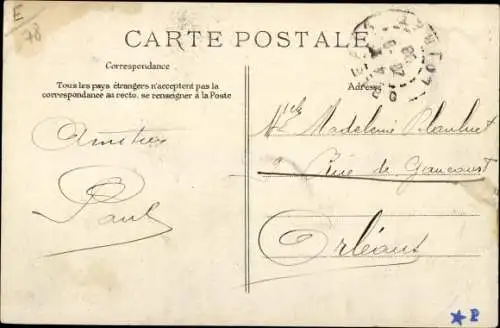 E
78
CARTE POSTALE
Correspondance
Tous les pays étrangers n'acceptent pas la
correspondance au recto, se renseigner à la Poste
Adresse
Amitiés
Paul
Mlle Madeleine
Rue de
Orléans
★ P